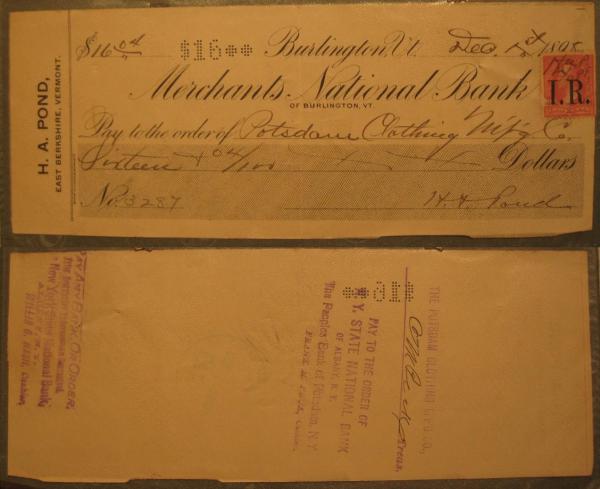 $16 04 $16 Burlington, Vt. Dec. 1st 1898
H. A. POND,
EAST BERKSHIRE, VERMONT.
Merchants National Bank
OF BURLINGTON, VT.
I.R.
Pay to the order of Potsdam Clothing M'f'g Co.
Sixteen + 04/100 Dollars
No. 3287 H. A. Pond
PAY ANY BANK OR ORDER,
New York State National Bank,
ALBANY, N.Y.
Cashier.
$16
PAY TO THE ORDER OF
N. Y. STATE NATIONAL BANK
OF ALBANY, N. Y.
The Peoples Bank of Potsdam, N.Y.
Cashier.
THE POTSDAM CLOTHING M'F'G CO.,
Treas.